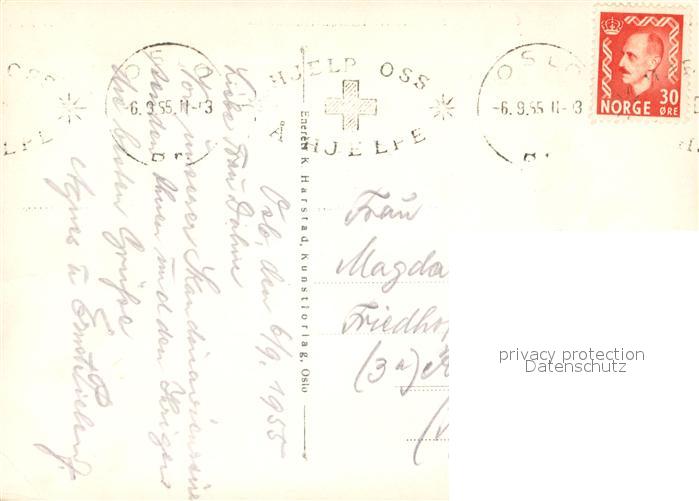 OSLO
-6.9.55.11-13
HJELP OSS
Å HJELPE
OSLO
-6.9.55 11-13
NORGE 30 ØRE
Oslo, den 6/9. 1955
Liebe Frau Dähne
Von unserer Skandinavienreise
senden Ihnen und den Ihrigen
die besten Grüße
Agnes u.
Enerett K. Harstad, Kunstforlag, Oslo
Frau
Magda
Friedhof
(3a)
privacy protection
Datenschutz